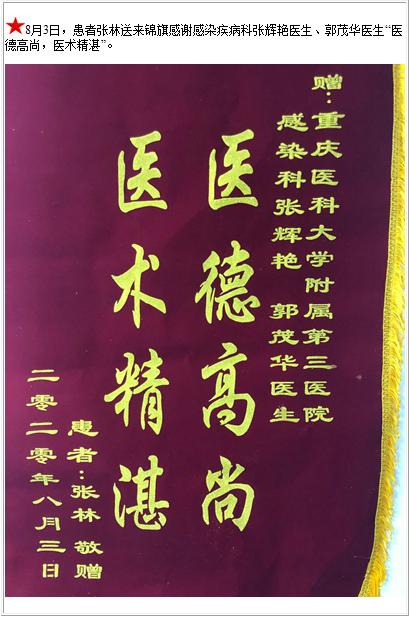 ★8月3日，患者张林送来锦旗感谢感染疾病科张辉艳医生、郭茂华医生“医
德高尚，医术精湛”。
赠：重庆医科大学附属第三医院
感染科张辉艳 郭茂华医生
医德高尚
医术精湛
患者：张林 敬赠
二零二零年八月三日